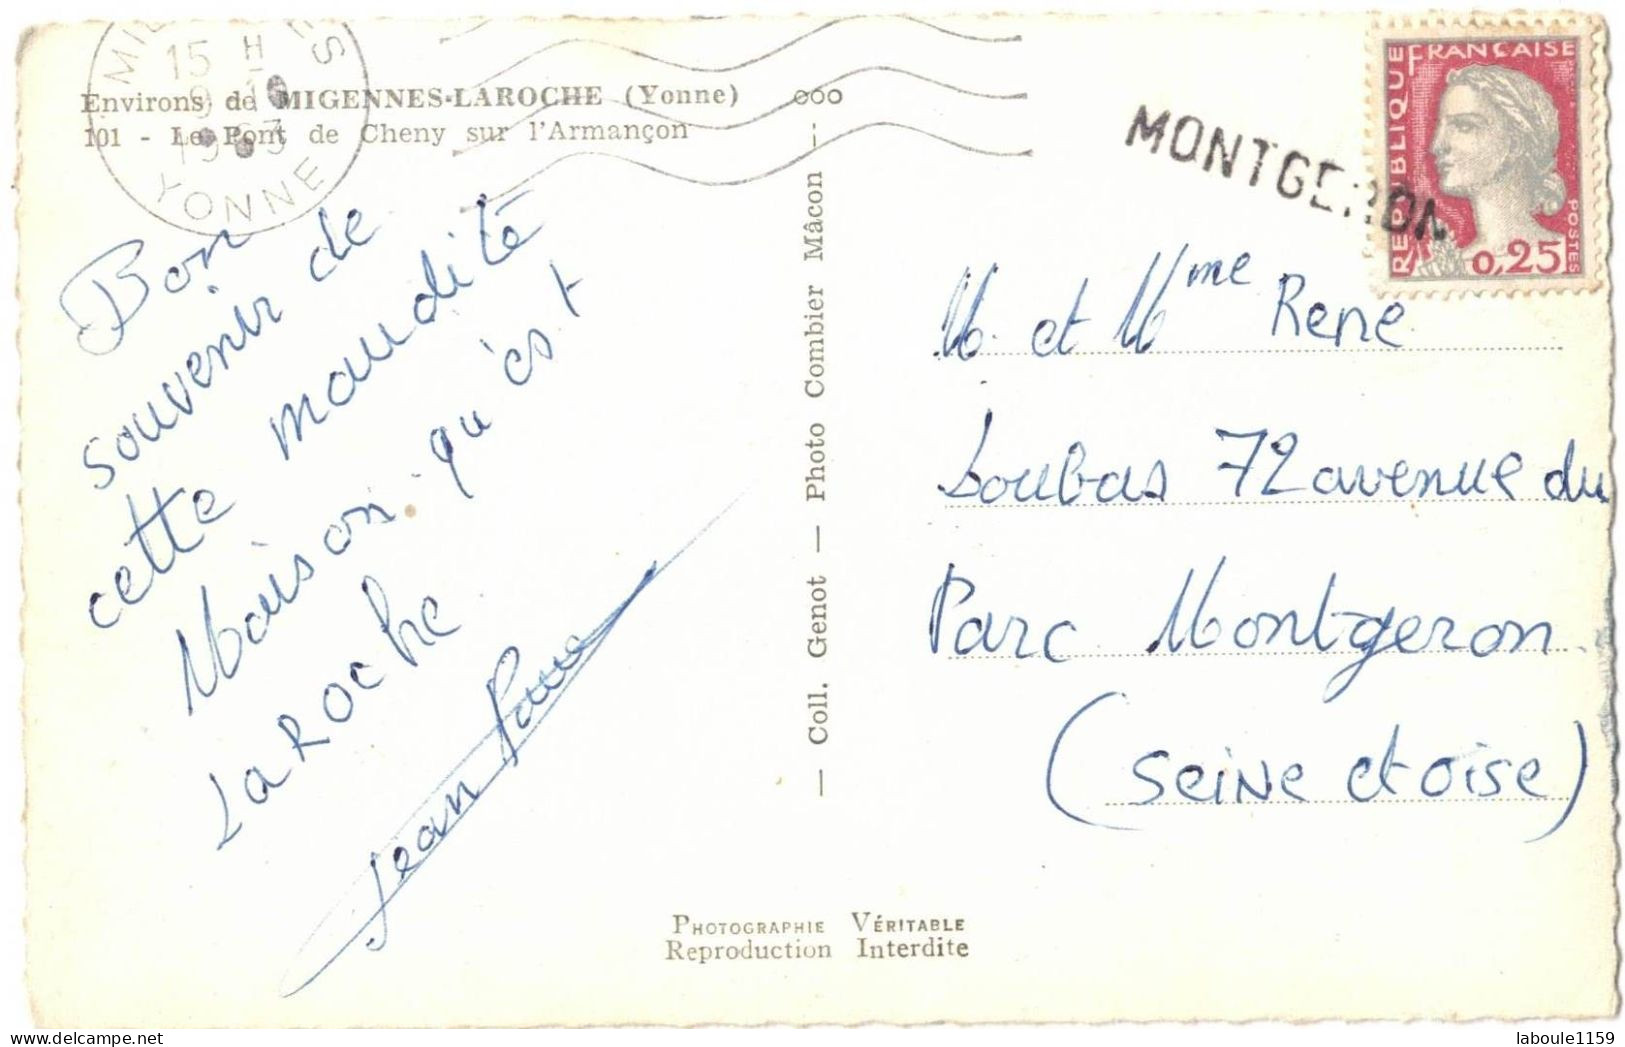 15 H
9
YONNE
Environs de MIGENNES-LAROCHE (Yonne) ooo
101 - Le Pont de Cheny sur l'Armançon
Bon
souvenir de
cette maudite
Maison qu'est
LaRoche
Jean Paul
— Coll. Genot — Photo Combier Mâcon —
PHOTOGRAPHIE VÉRITABLE
Reproduction Interdite
MONTGERON
REPUBLIQUE FRANÇAISE
POSTES
0,25
M. et Mme René
Soubas 72 avenue du
Parc Montgeron
(Seine et oise)
laboule1159